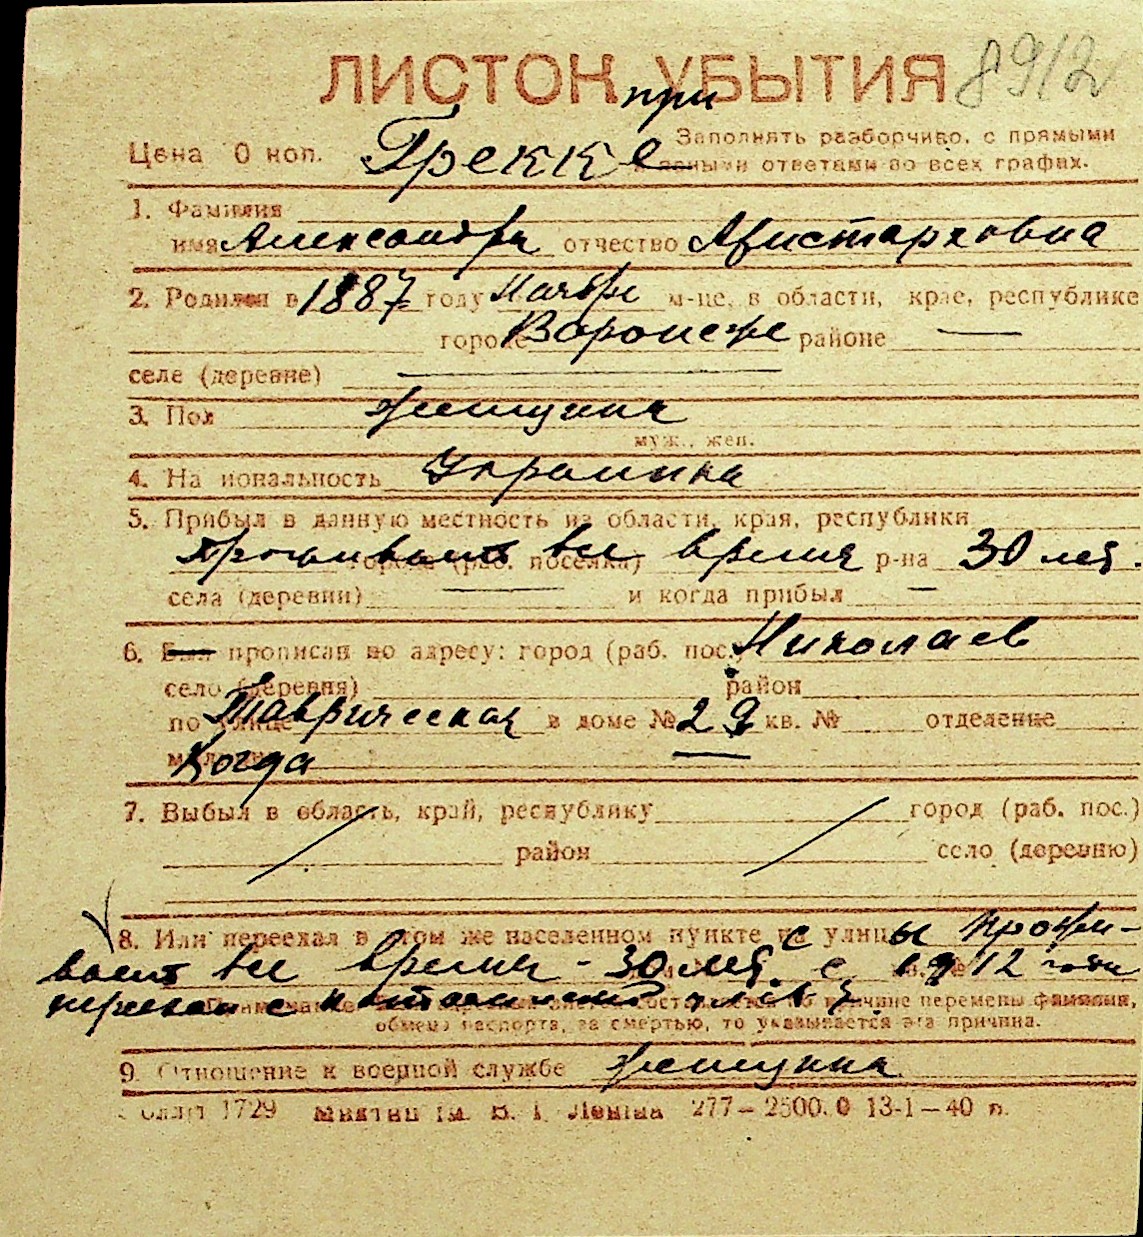 ЛИСТОК УБЫТИЯ 8912
при
Цена 0 коп. Грекке Заполнять разборчиво, с прямыми
ответами во всех графах.
1. Фамилия
имя Александра отчество Аристарховна
2. Родился в 1887 году Ноябре м-це, в области, крае, республике
городе Воронеже районе —
селе (деревне) —
3. Пол женщина
муж., жен.
4. Национальность Украинка
5. Прибыл в данную местность из области, края, республики
проживает все время р-на 30 лет.
села (деревни) — и когда прибыл —
6. прописан по адресу: город (раб. пос.) Николаев
село (деревня) район
по улице Таврическая в доме № 29 кв. № отделение
Когда
7. Выбыл в область, край, республику город (раб. пос.)
район село (деревню)
8. Или переехал в этом же населенном пункте с улицы прожи-
вает все время - 30 лет с 1912 года
причине перемены фамилии,
обмена паспорта, за смертью, то указывается эта причина.
9. Отношение к военной службе женщина
1729 277—2500.0 13-1—40 п.